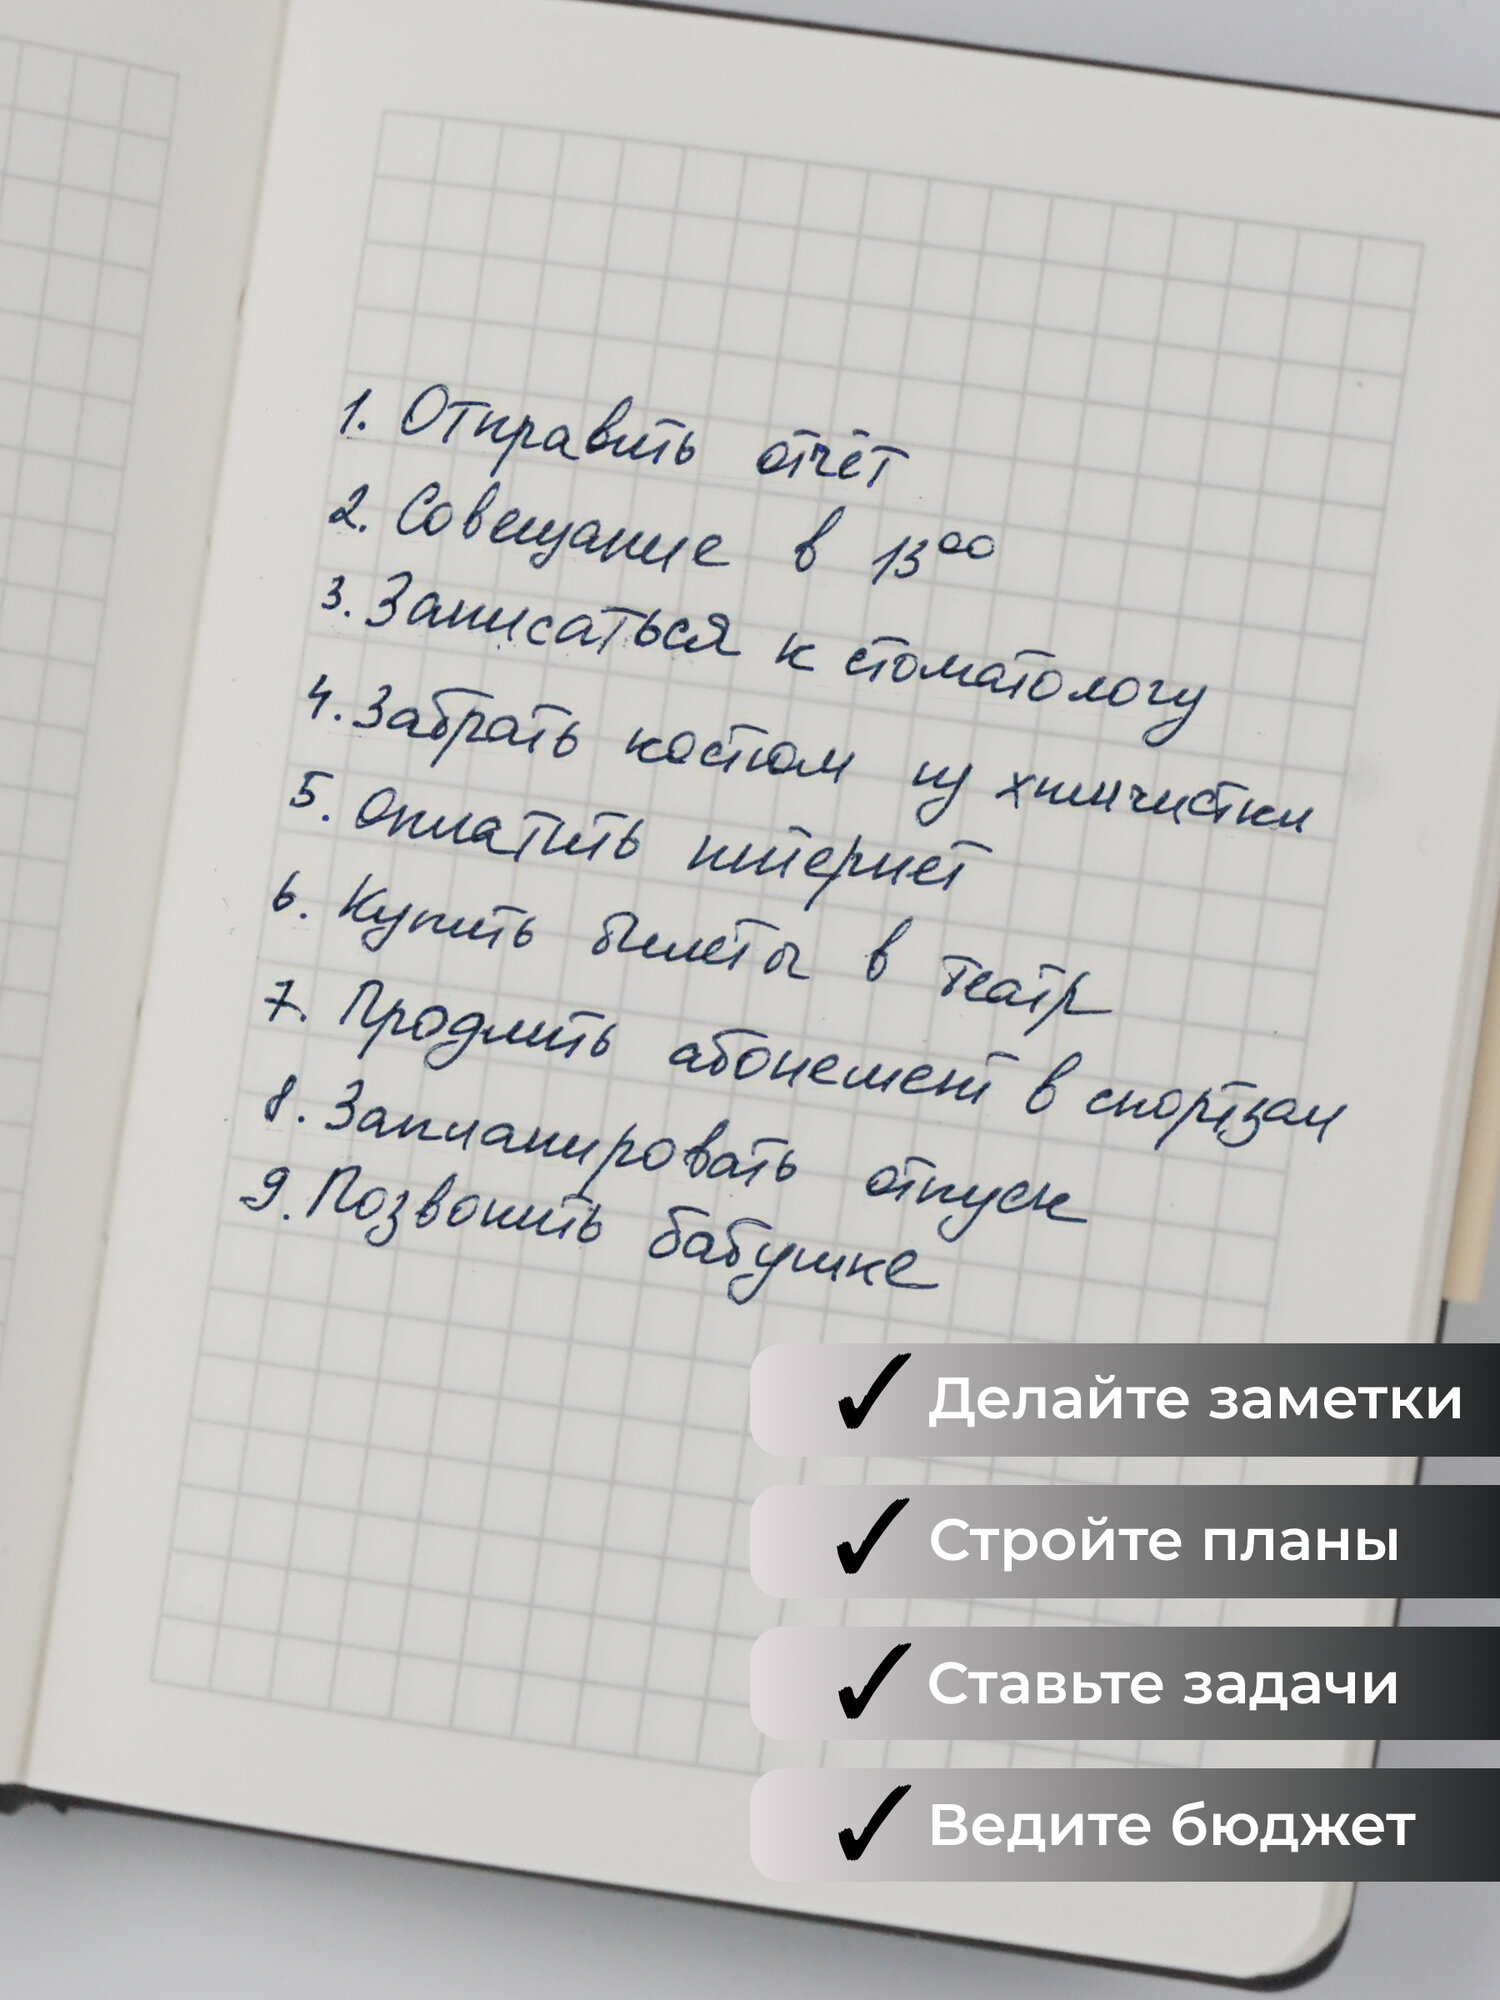 1. Отправить отчёт
2. Совещание в 13⁰⁰
3. Записаться к стоматологу
4. Забрать костюм из химчистки
5. Оплатить интернет
6. Купить билеты в театр
7. Продлить абонемент в спортзал
8. Запланировать отпуск
9. Позвонить бабушке
✓ Делайте заметки
✓ Стройте планы
✓ Ставьте задачи
✓ Ведите бюджет